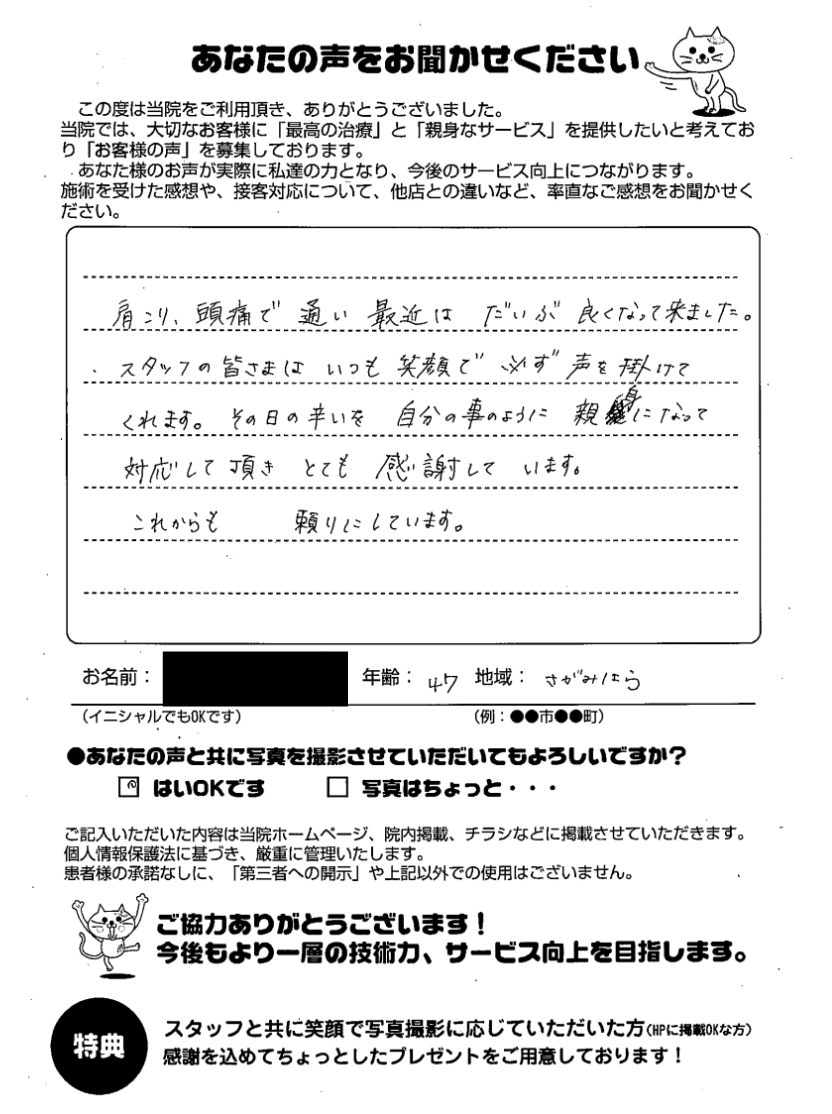 あなたの声をお聞かせください
この度は当院をご利用頂き、ありがとうございました。
当院では、大切なお客様に「最高の治療」と「親身なサービス」を提供したいと考えてお
り「お客様の声」を募集しております。
あなた様のお声が実際に私達の力となり、今後のサービス向上につながります。
施術を受けた感想や、接客対応について、他店との違いなど、率直なご感想をお聞かせく
ださい。
肩こり、頭痛で 通い 最近は だいぶ 良くなって来ました。
スタッフの皆さまは いつも 笑顔で 必ず 声を掛けて
くれます。その日の辛いを 自分の事のように 親身になって
対応して頂き とても 感謝して います。
これからも 頼りにしています。
お名前： 年齢：47 地域：さがみはら
（イニシャルでもOKです） （例：●●市●●町）
●あなたの声と共に写真を撮影させていただいてもよろしいですか？
はいOKです □ 写真はちょっと・・・
ご記入いただいた内容は当院ホームページ、院内掲載、チラシなどに掲載させていただきます。
個人情報保護法に基づき、厳重に管理いたします。
患者様の承諾なしに、「第三者への開示」や上記以外での使用はございません。
ご協力ありがとうございます！
今後もより一層の技術力、サービス向上を目指します。
特典
スタッフと共に笑顔で写真撮影に応じていただいた方（HPに掲載OKな方）
感謝を込めてちょっとしたプレゼントをご用意しております！